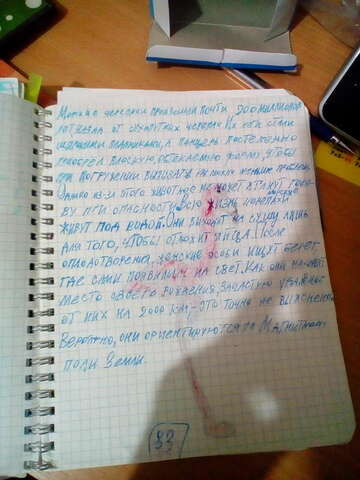 Морские черепахи произошли почти 300 миллионов
лет назад от сухопутных черепах. Их ноги стали
широкими плавниками, а панцирь постепенно
приобрёл плоскую, обтекаемую форму, чтобы
при погружении вызывать как можно меньше
Однако из-за этого животное не может втянуть голо-
ву при опасности. Всю жизнь морские черепахи
живут под водой. Они выходят на сушу лишь
для того, чтобы отложить яйца. После
оплодотворения, женские особи ищут берег,
где сами появились на свет. Как они находят
место своего рождения, зачастую
от них на 2000 км, - это точно не выяснено.
Вероятно, они ориентируются по Магнитному
полю Земли.
33